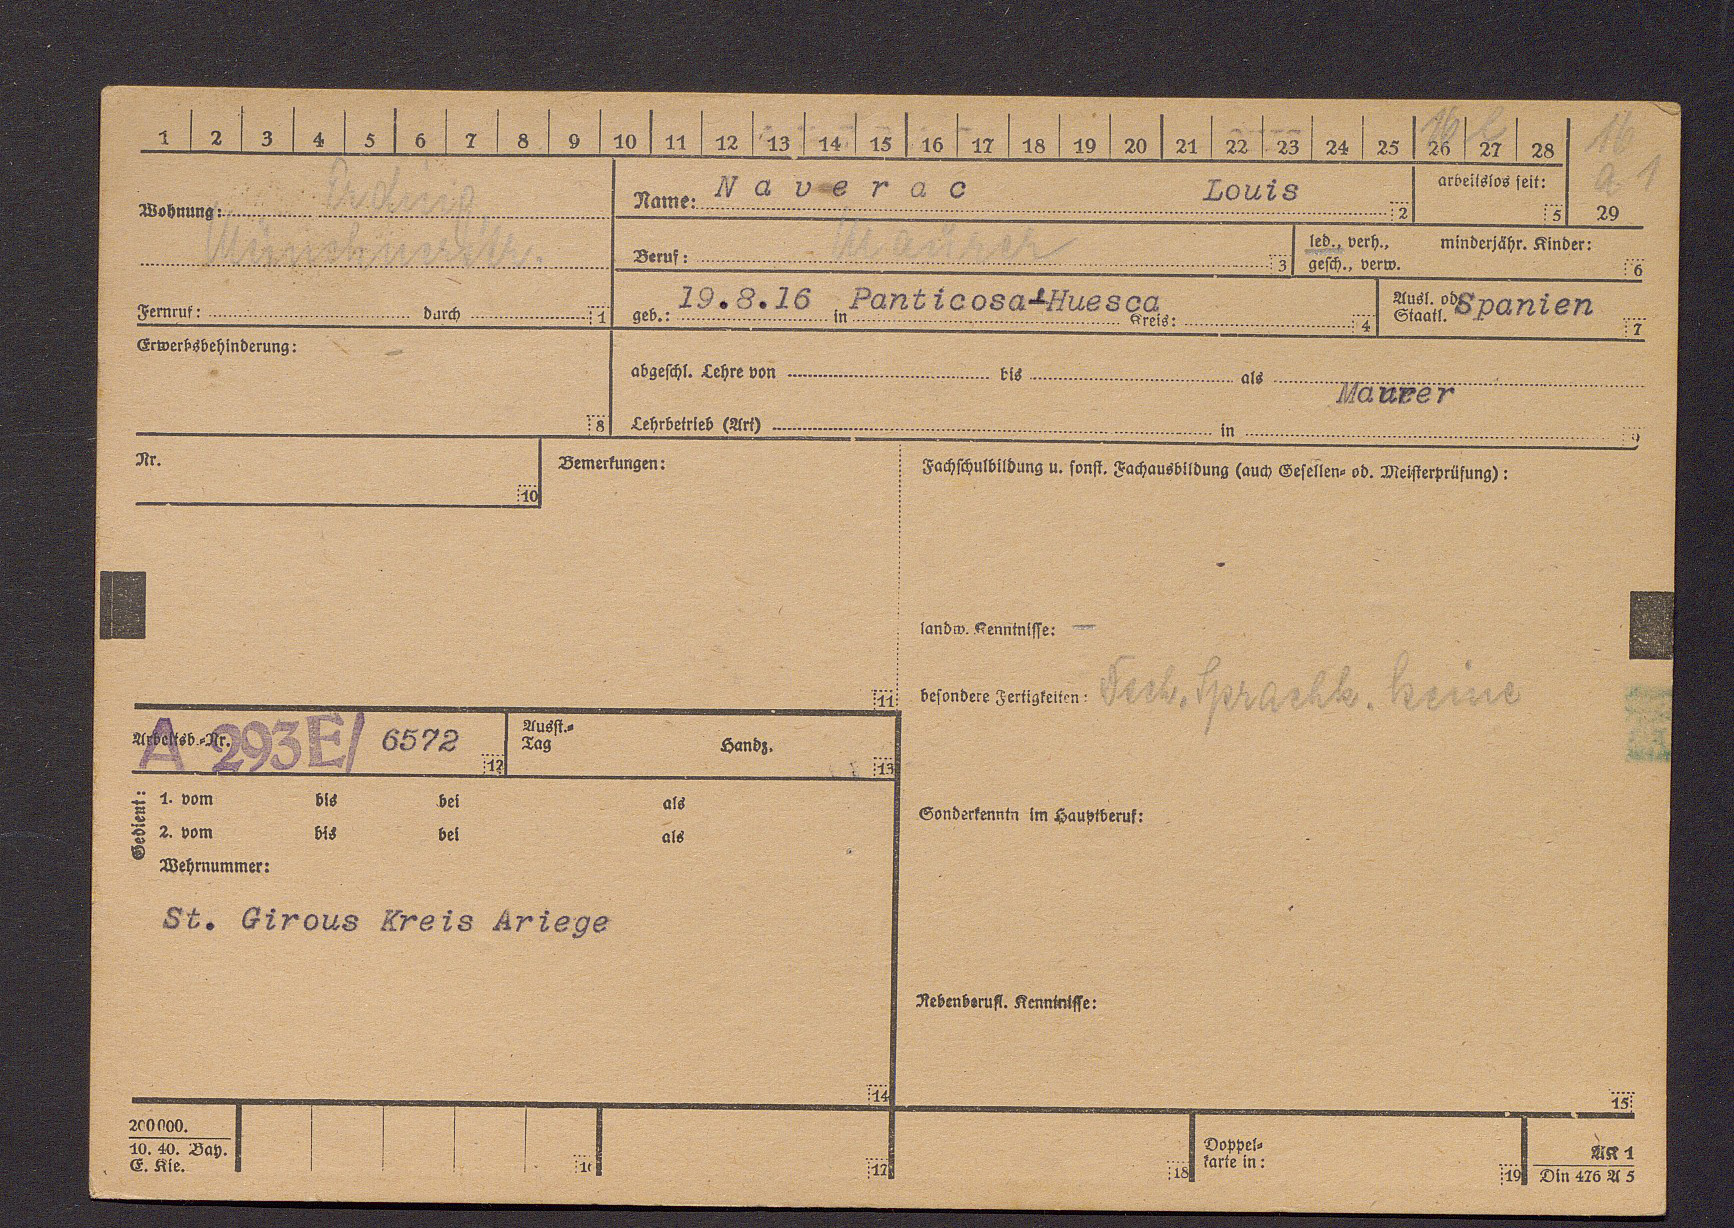 1 2 3 4 5 6 7 8 9 10 11 12 13 14 15 16 17 18 19 20 21 22 23 24 25 26 27 28
16
a 1
29
Wohnung:
Erding,
Münchnerstr.
Fernruf: durch 1
Name: Naverac Louis 2
arbeitslos seit: 5
Beruf: Maurer 3
led., verh.,
gesch., verw.
minderjähr. Kinder: 6
geb.: 19.8.16 in Panticosa-Huesca Kreis: 4
Ausl. od.
Staatl. Spanien 7
Erwerbsbehinderung: - 8
abgeschl. Lehre von bis als
Maurer
Lehrbetrieb (Art) in 9
Nr. 10
Bemerkungen: 11
Fachschulbildung u. sonst. Fachausbildung (auch Gesellen- od. Meisterprüfung):
landw. Kenntnisse: —
besondere Fertigkeiten: Sprachk. keine
Arbeitsb.-Nr. A 293E/ 6572 12
Ausst.-
Tag Handz. 13
Gedient:
1. vom bis bei als
2. vom bis bei als
Wehrnummer:
St. Girous Kreis Ariege
14
Sonderkenntn im Hauptberuf:
Nebenberufl. Kenntnisse:
15
200000.
10. 40. Bay.
E. Kie.
16 17 18
Doppel-
karte in: 19
AK 1
Din 476 A 5